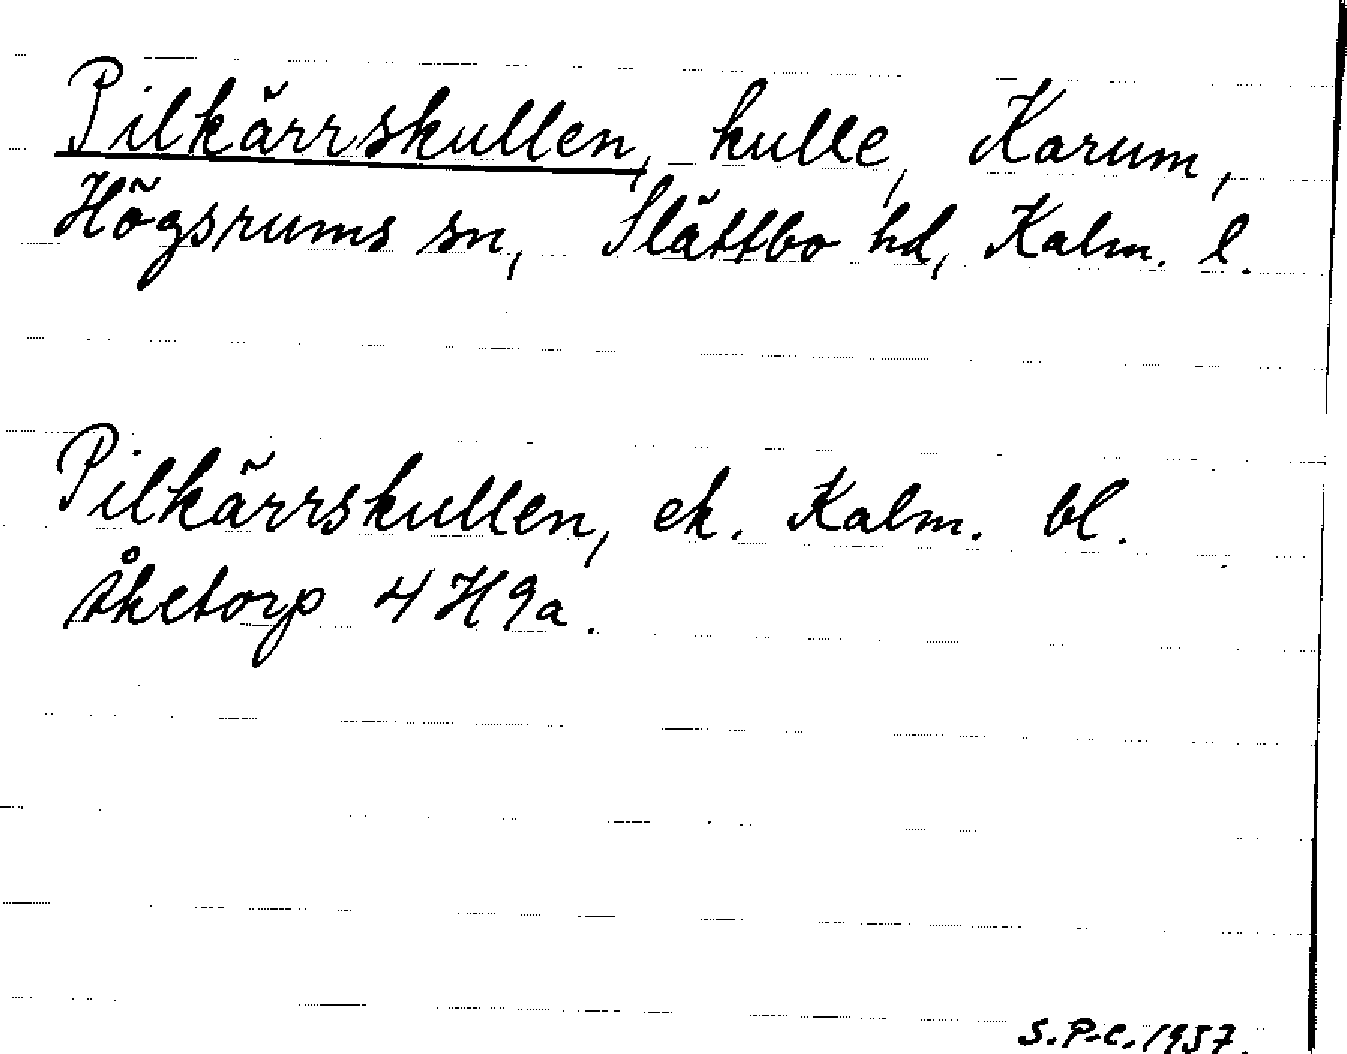 Pilkärrskullen, kulle, Karum,
Högsrums sn, Slättbo hd, Kalm. l.
Pilkärrskullen, ek. Kalm. bl.
Åketorp 4 H 9a.
S.P-C. 1957.